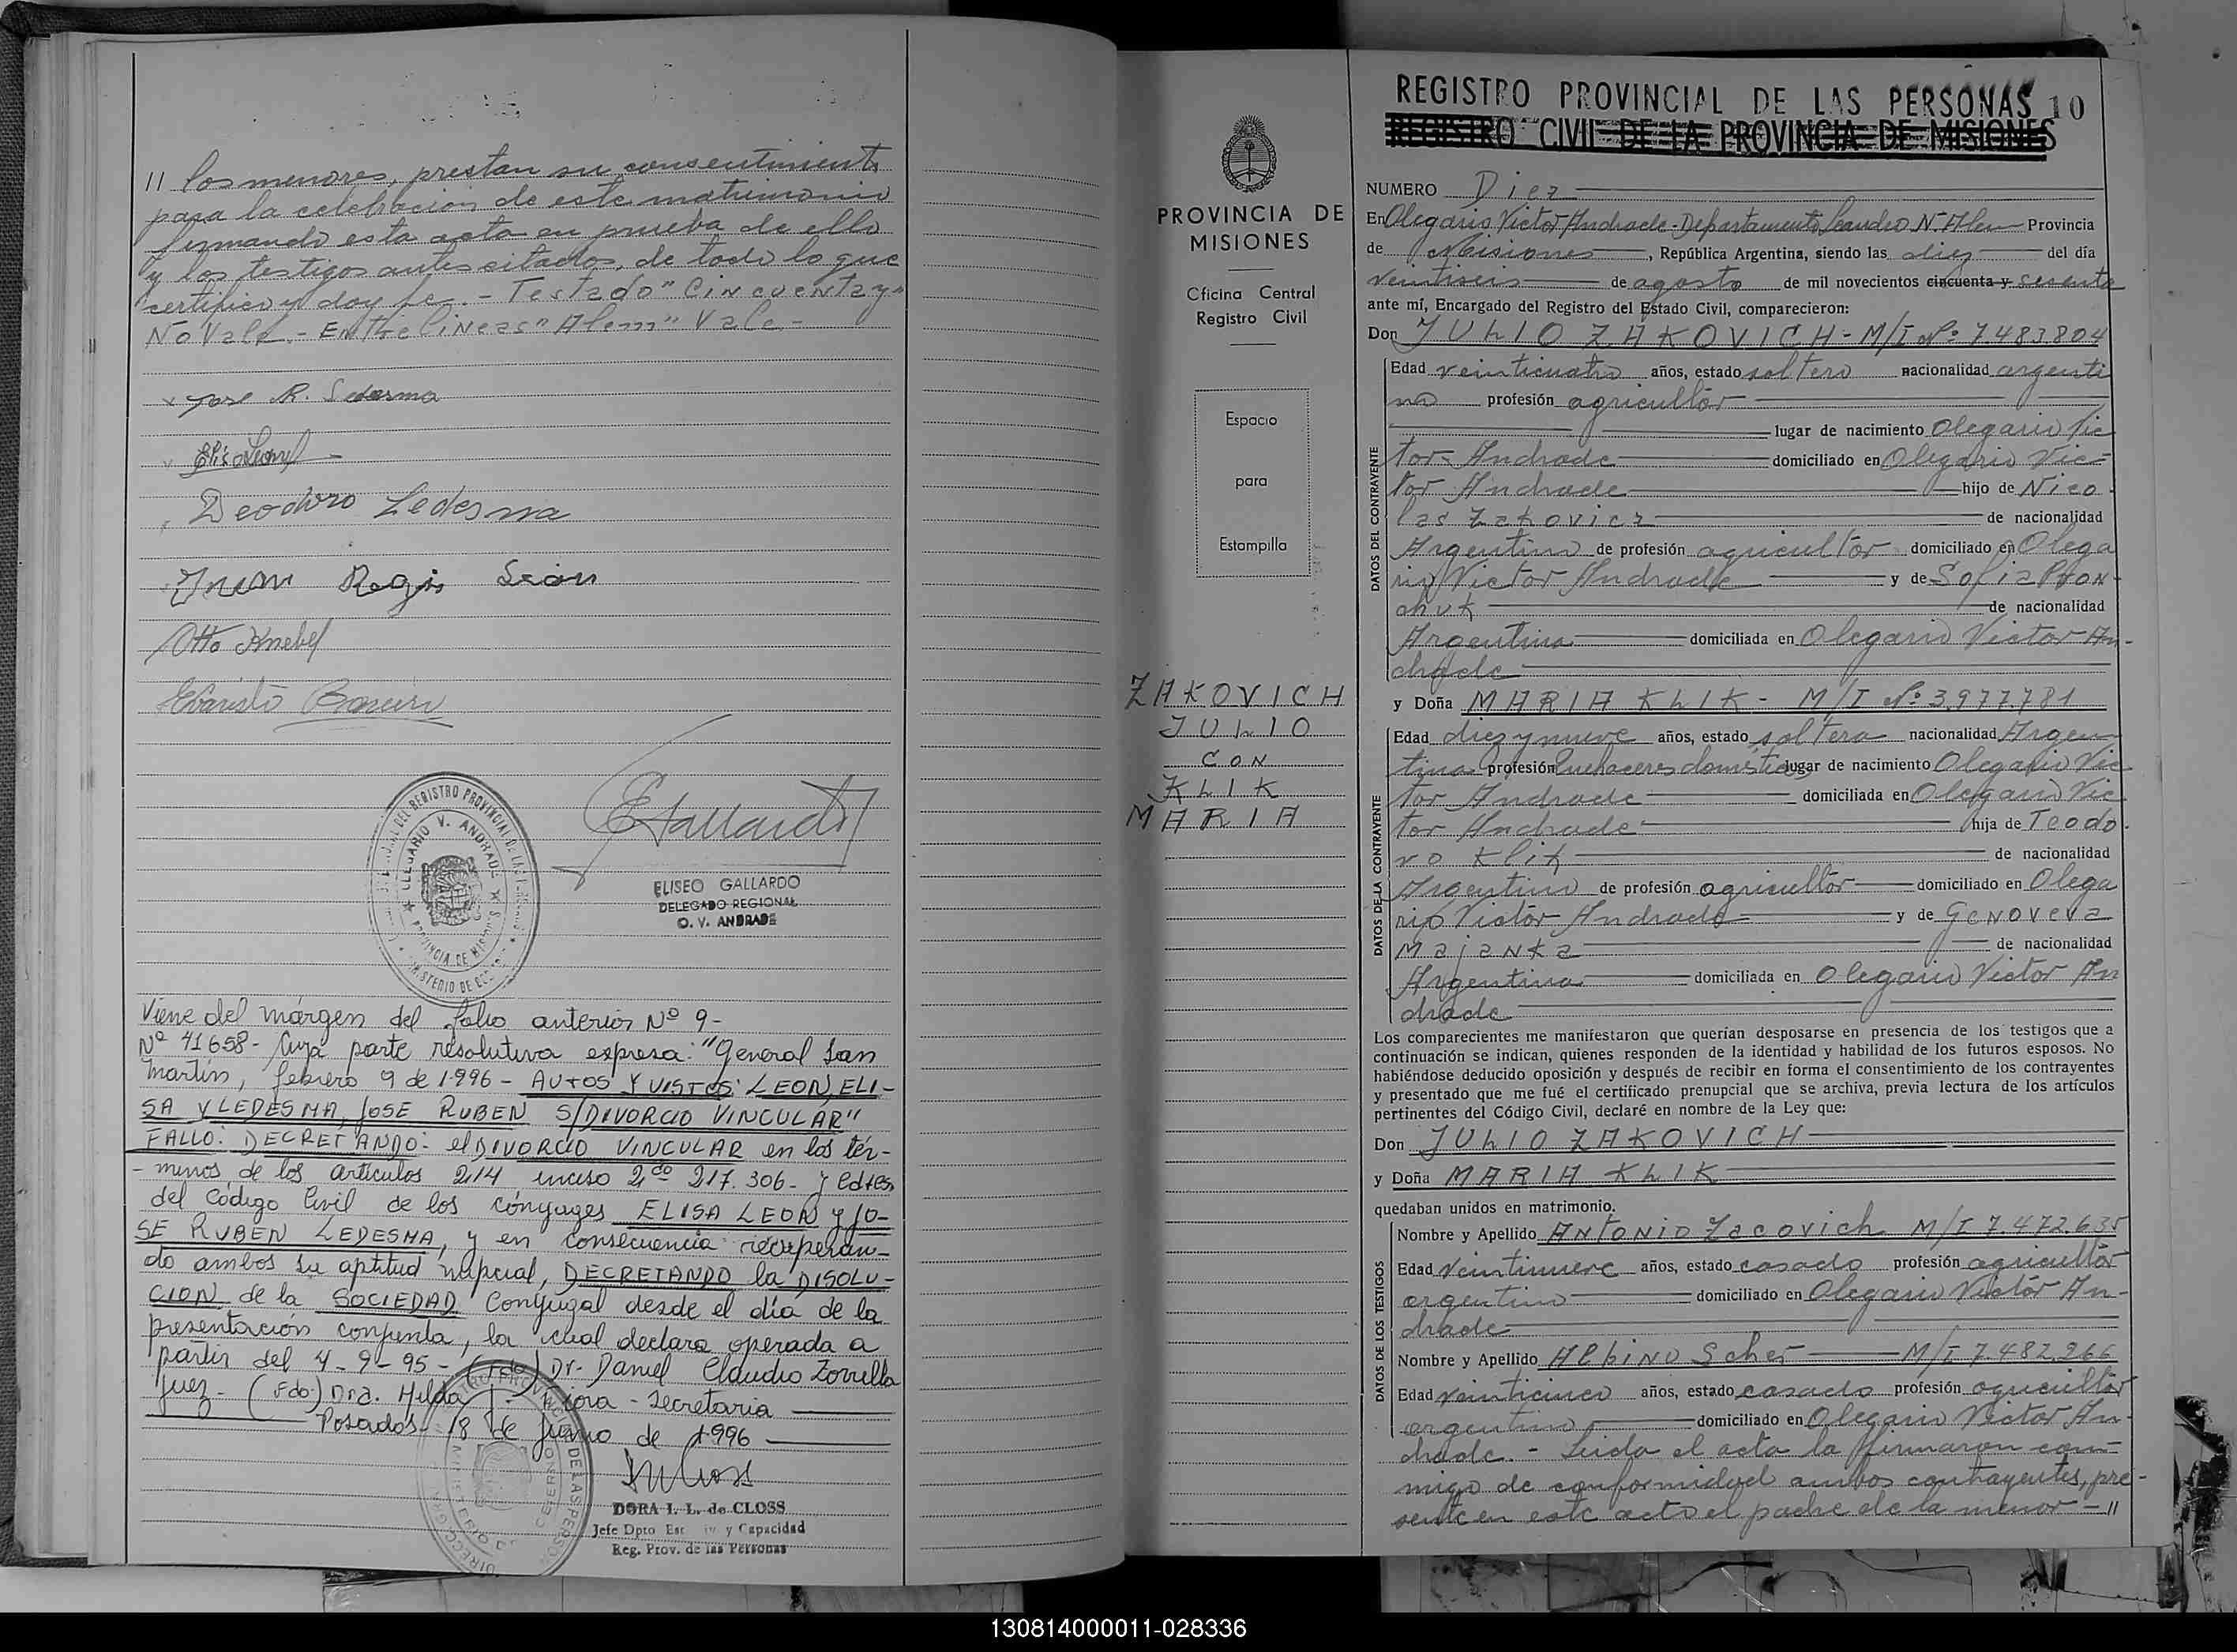 // los menores, prestan su consentimiento
para la celebración de este matrimonio
firmando esta acta en prueba de ello
y los testigos antes citados, de todo lo que
certifico y doy fe. - Testado "Cincuenta y"
No Vale. - Entre lineas "Alem" Vale -
x Jose R. Ledesma
Elisa Leon
Deodoro Ledesma
Juan Regis León
Otto Knebel
Evaristo
EGallardo
ELISEO GALLARDO
DELEGADO REGIONAL
O. V. ANDRADE
Viene del márgen del folio anterior Nº 9-
Nº 41658- Cuya parte resolutiva expresa: "General San
Martín, febrero 9 de 1996 - AUTOS Y VISTOS: LEON, ELI-
SA Y LEDESMA, JOSE RUBEN S/DIVORCIO VINCULAR"
FALLO: DECRETANDO: el DIVORCIO VINCULAR en los tér-
- minos de los artículos 214 inciso 2do 217. 306- y cdtes
del Código Civil de los cónyuges ELISA LEON y JO-
SE RUBEN LEDESMA, y en consecuencia recuperan-
do ambos su aptitud nupcial, DECRETANDO la DISOLU-
CION de la SOCIEDAD Conyugal desde el día de la
presentación conjunta, la cual declara operada a
partir del 4-9-95- (Fdo) Dr. Daniel Claudio Zorrilla
Juez- (Fdo:) Dra. Hilda - Secretaria
Posadas- 18 de Junio de 1996
DORA I. L. de CLOSS
Jefe Dpto Est y Capacidad
Reg. Prov. de las Personas
PROVINCIA DE
MISIONES
Oficina Central
Registro Civil
Espacio
para
Estampilla
ZAKOVICH
JULIO
CON
KLIK
MARIA
REGISTRO PROVINCIAL DE LAS PERSONAS 10
REGISTRO CIVIL DE LA PROVINCIA DE MISIONES
NUMERO Diez
En Olegario Victor Andrade - Departamento Leandro N. Alem Provincia
de Misiones, República Argentina, siendo las diez del día
veintiseis de agosto de mil novecientos cincuenta y sesenta
ante mí, Encargado del Registro del Estado Civil, comparecieron:
Don JULIO ZAKOVICH - M/I Nº: 7.483.804
DATOS DEL CONTRAYENTE
Edad veinticuatro años, estado soltero nacionalidad argenti
no profesión agricultor
lugar de nacimiento Olegario Vic
tor Andrade domiciliado en Olegario Vic-
tor Andrade hijo de Nico
las Zakovicz de nacionalidad
Argentino de profesión agricultor domiciliado en Olega
rio Victor Andrade y de Sofia Pron-
chuk de nacionalidad
Argentina domiciliada en Olegario Victor An-
drade
y Doña MARIA KLIK - M/I Nº: 3.977.781
DATOS DE LA CONTRAYENTE
Edad diez y nueve años, estado soltera nacionalidad Argen
tina profesión Quehaceres domésticos lugar de nacimiento Olegario Vic
tor Andrade domiciliada en Olegario Vic
tor Andrade hija de Teodo-
ro Klik de nacionalidad
Argentino de profesión agricultor domiciliado en Olega
rio Victor Andrade y de Genoveva
Majanka de nacionalidad
Argentina domiciliada en Olegario Victor An
drade
Los comparecientes me manifestaron que querían desposarse en presencia de los testigos que a
continuación se indican, quienes responden de la identidad y habilidad de los futuros esposos. No
habiéndose deducido oposición y después de recibir en forma el consentimiento de los contrayentes
y presentado que me fué el certificado prenupcial que se archiva, previa lectura de los artículos
pertinentes del Código Civil, declaré en nombre de la Ley que:
Don JULIO ZAKOVICH
y Doña MARIA KLIK
quedaban unidos en matrimonio.
DATOS DE LOS TESTIGOS
Nombre y Apellido Antonio Zacovich M/I 7.472.635
Edad Veintinueve años, estado casado profesión agricultor
argentino domiciliado en Olegario Victor An-
drade
Nombre y Apellido Albino Scher M/I 7.482.266
Edad veinticinco años, estado casado profesión agricultor
argentino domiciliado en Olegario Victor An-
drade. - Leida el acta la firmaron con-
migo de conformidad ambos contrayentes, pre-
sente en este acto el padre de la menor - //
130814000011-028336